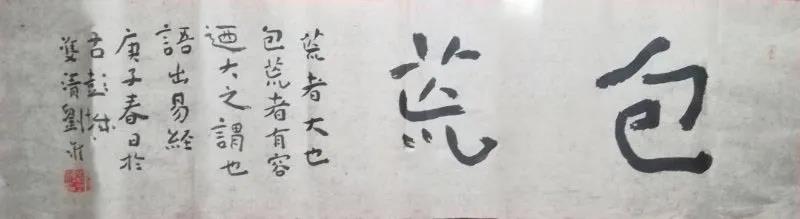 包荒
荒者大也
包荒者有容
迺大之謂也
語出易經
庚子春日於
古彭城
雙清劉